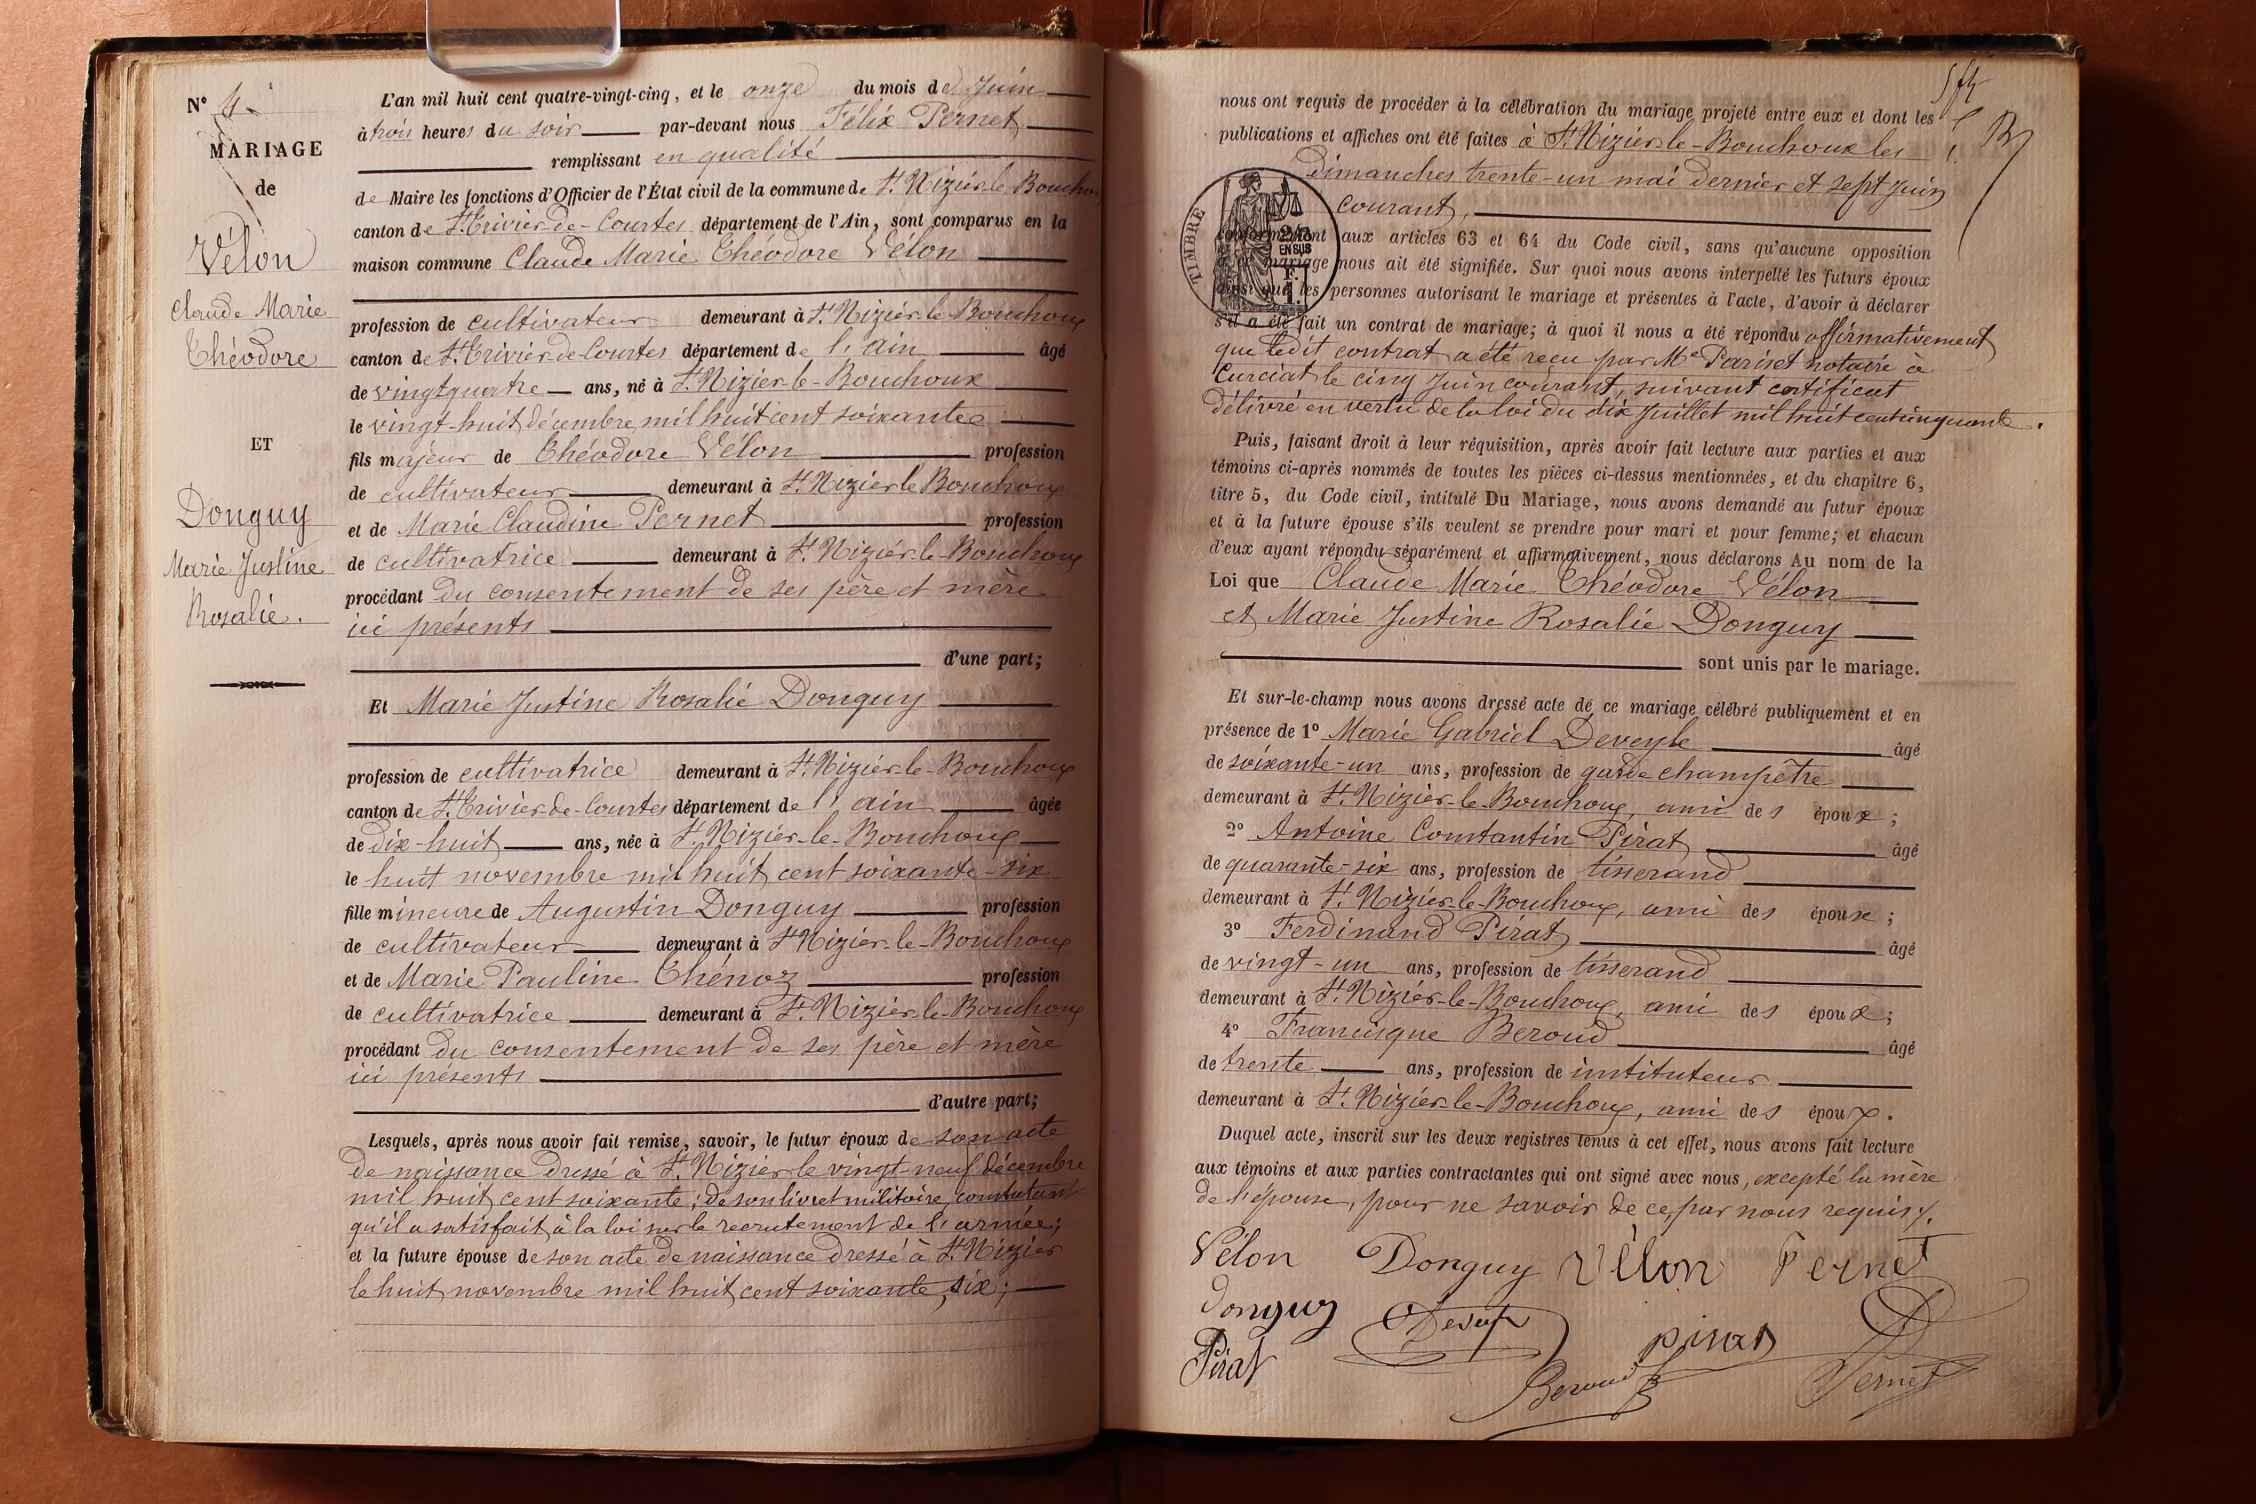 N° 4.
MARIAGE
de
Vélon
Claude Marie
Théodore
ET
Donguy
Marie Justine
Rosalie.
L'an mil huit cent quatre-vingt-cinq, et le onze du mois de Juin
à trois heures du soir par-devant nous Félix Pernet
remplissant en qualité
de Maire les fonctions d'Officier de l'État civil de la commune de St. Nizier-le-Bouchoux
canton de St. Trivier-de-Courtes département de l'Ain, sont comparus en la
maison commune Claude Marie Théodore Vélon
profession de cultivateur demeurant à St. Nizier-le-Bouchoux
canton de St. Trivier-de-Courtes département de l'ain âgé
de vingt quatre ans, né à St. Nizier-le-Bouchoux
le vingt-huit décembre mil huit cent soixante
fils majeur de Théodore Vélon profession
de cultivateur demeurant à St. Nizier le Bouchoux
et de Marie Claudine Pernet profession
de cultivatrice demeurant à St. Nizier-le-Bouchoux
procédant du consentement de ses père et mère
ici présents
d'une part;
Et Marie Justine Rosalie Donguy
profession de cultivatrice demeurant à St. Nizier-le-Bouchoux
canton de St. Trivier-de-Courtes département de l'ain âgée
de dix-huit ans, née à St. Nizier-le-Bouchoux
le huit novembre mil huit cent soixante-six
fille mineure de Augustin Donguy profession
de cultivateur demeurant à St Nizier-le-Bouchoux
et de Marie Pauline Thénoz profession
de cultivatrice demeurant à St. Nizier-le-Bouchoux
procédant du consentement de ses père et mère
ici présents
d'autre part;
Lesquels, après nous avoir fait remise, savoir, le futur époux de son acte
de naissance dressé à St. Nizier le vingt-neuf décembre
mil huit cent soixante; de son livret militaire, constatant
qu'il a satisfait à la loi sur le recrutement de l'armée;
et la future épouse de son acte de naissance dressé à St. Nizier
le huit novembre mil huit cent soixante, six;
nous ont requis de procéder à la célébration du mariage projeté entre eux et dont les
publications et affiches ont été faites à St. Nizier-le-Bouchoux les
dimanches trente-un mai dernier et sept juin
courant,
conformément aux articles 63 et 64 du Code civil, sans qu'aucune opposition
mariage nous ait été signifiée. Sur quoi nous avons interpellé les futurs époux
ainsi que les personnes autorisant le mariage et présentes à l'acte, d'avoir à déclarer
s'il a été fait un contrat de mariage; à quoi il nous a été répondu affirmativement
que ledit contrat a été reçu par Me Pariset notaire à
Curciat le cinq Juin courant, suivant certificat
délivré en vertu de la loi du dix Juillet mil huit cent cinquante.
TIMBRE
2/10
EN SUS
F.
1.
Puis, faisant droit à leur réquisition, après avoir fait lecture aux parties et aux
témoins ci-après nommés de toutes les pièces ci-dessus mentionnées, et du chapitre 6,
titre 5, du Code civil, intitulé Du Mariage, nous avons demandé au futur époux
et à la future épouse s'ils veulent se prendre pour mari et pour femme; et chacun
d'eux ayant répondu séparément et affirmativement, nous déclarons Au nom de la
Loi que Claude Marie Théodore Vélon
et Marie Justine Rosalie Donguy
sont unis par le mariage.
Et sur-le-champ nous avons dressé acte de ce mariage célébré publiquement et en
présence de 1° Marie Gabriel Deveyle âgé
de soixante-un ans, profession de garde champêtre
demeurant à St. Nizier-le-Bouchoux, ami des époux;
2° Antoine Constantin Pirat âgé
de quarante-six ans, profession de tisserand
demeurant à St. Nizier-le-Bouchoux, ami des époux;
3° Ferdinand Pirat âgé
de vingt-un ans, profession de tisserand
demeurant à St. Nizier-le-Bouchoux, ami des époux;
4° Francisque Beroud âgé
de trente ans, profession de instituteur
demeurant à St. Nizier-le-Bouchoux, ami des époux.
Duquel acte, inscrit sur les deux registres tenus à cet effet, nous avons fait lecture
aux témoins et aux parties contractantes qui ont signé avec nous, excepté la mère
de l'épouse, pour ne savoir de ce, par nous requis.
Vélon Donguy Vélon Pernet
donguy
Pirat pirat
Beroud Pernet